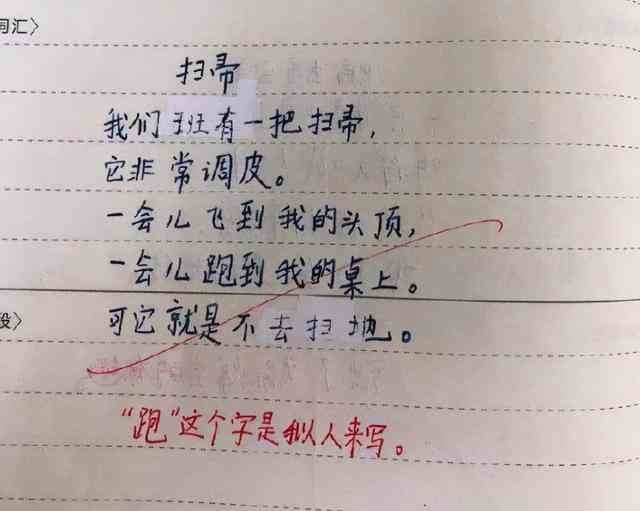 词汇〉
扫帚
我们班有一把扫帚，
它非常调皮。
一会儿飞到我的头顶，
一会儿跑到我的桌上。
段〉
可它就是不去扫地。
“跑”这个字是拟人来写。